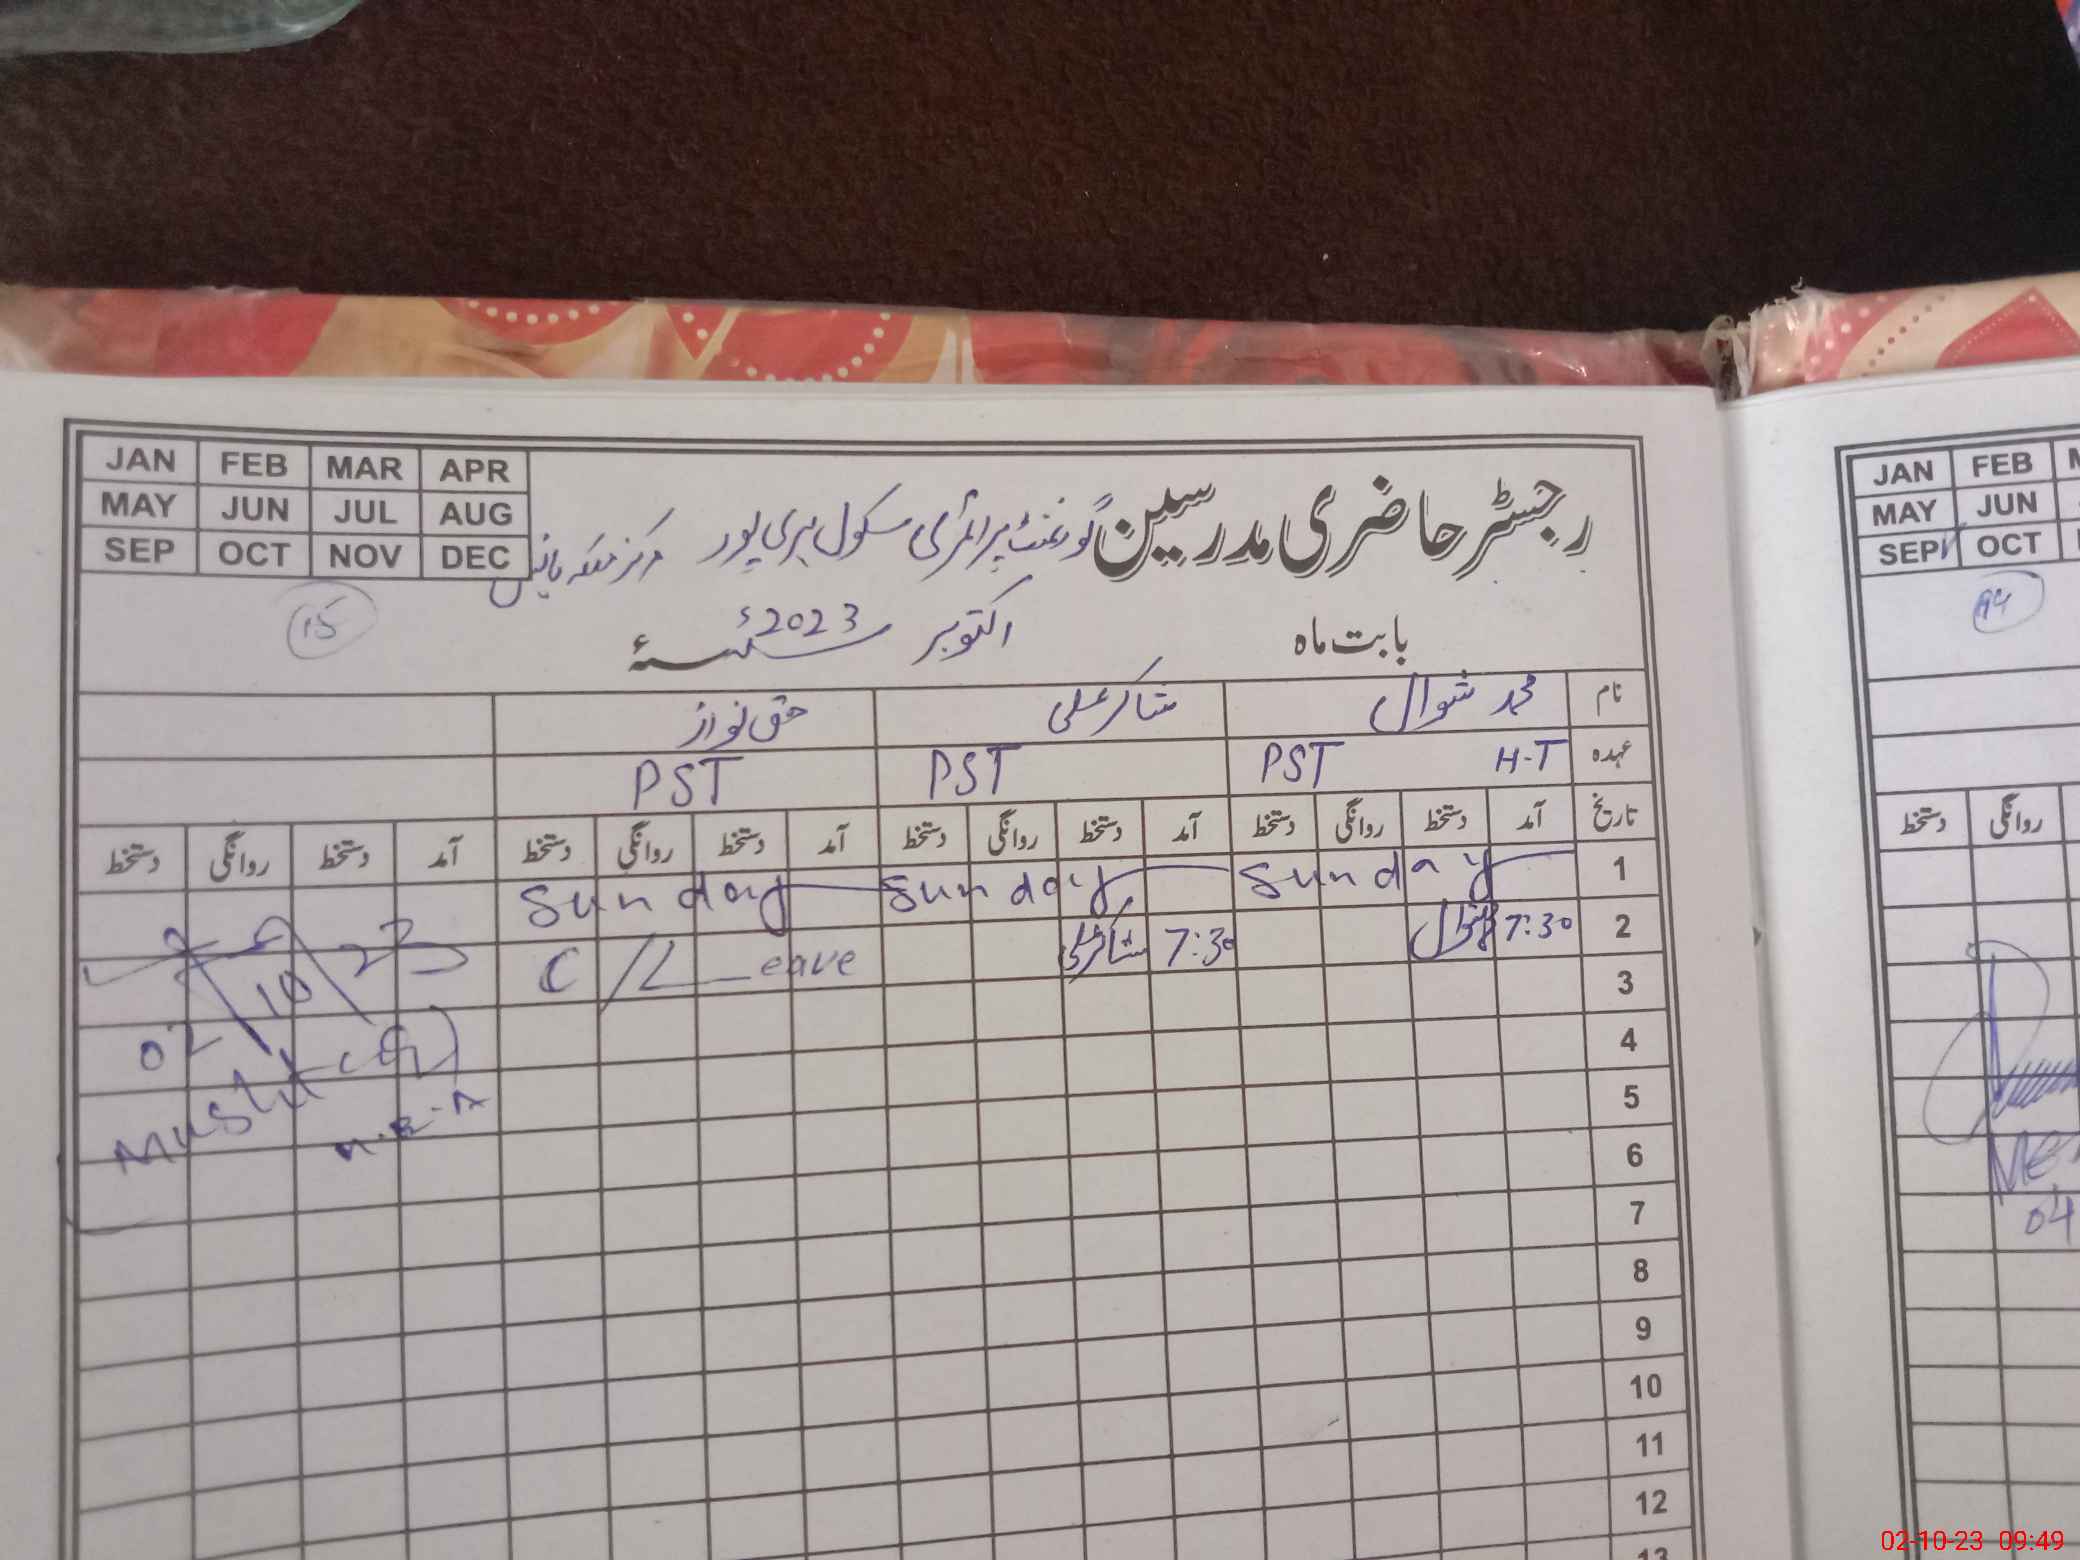 JAN FEB MAR APR
MAY JUN JUL AUG
SEP OCT NOV DEC
رجسٹر حاضری مدرسین گورنمنٹ پرائمری سکول ہری پور مرکز
15
بابت ماہ اکتوبر 2023ء
نام محمد شوال شاکر علی حق نواز
عہدہ H-T PST PST PST
تاریخ آمد دستخط روانگی دستخط آمد دستخط روانگی دستخط آمد دستخط روانگی دستخط آمد دستخط روانگی دستخط
1 Sunday Sunday Sunday
2 7:30 شوال 7:30 شاکر علی C/Leave
3
4
5
6
7
8
9
10
11
12
13
02 10 23
JAN FEB
MAY JUN
SEP OCT
94
دستخط روانگی
04
02-10-23 09:49